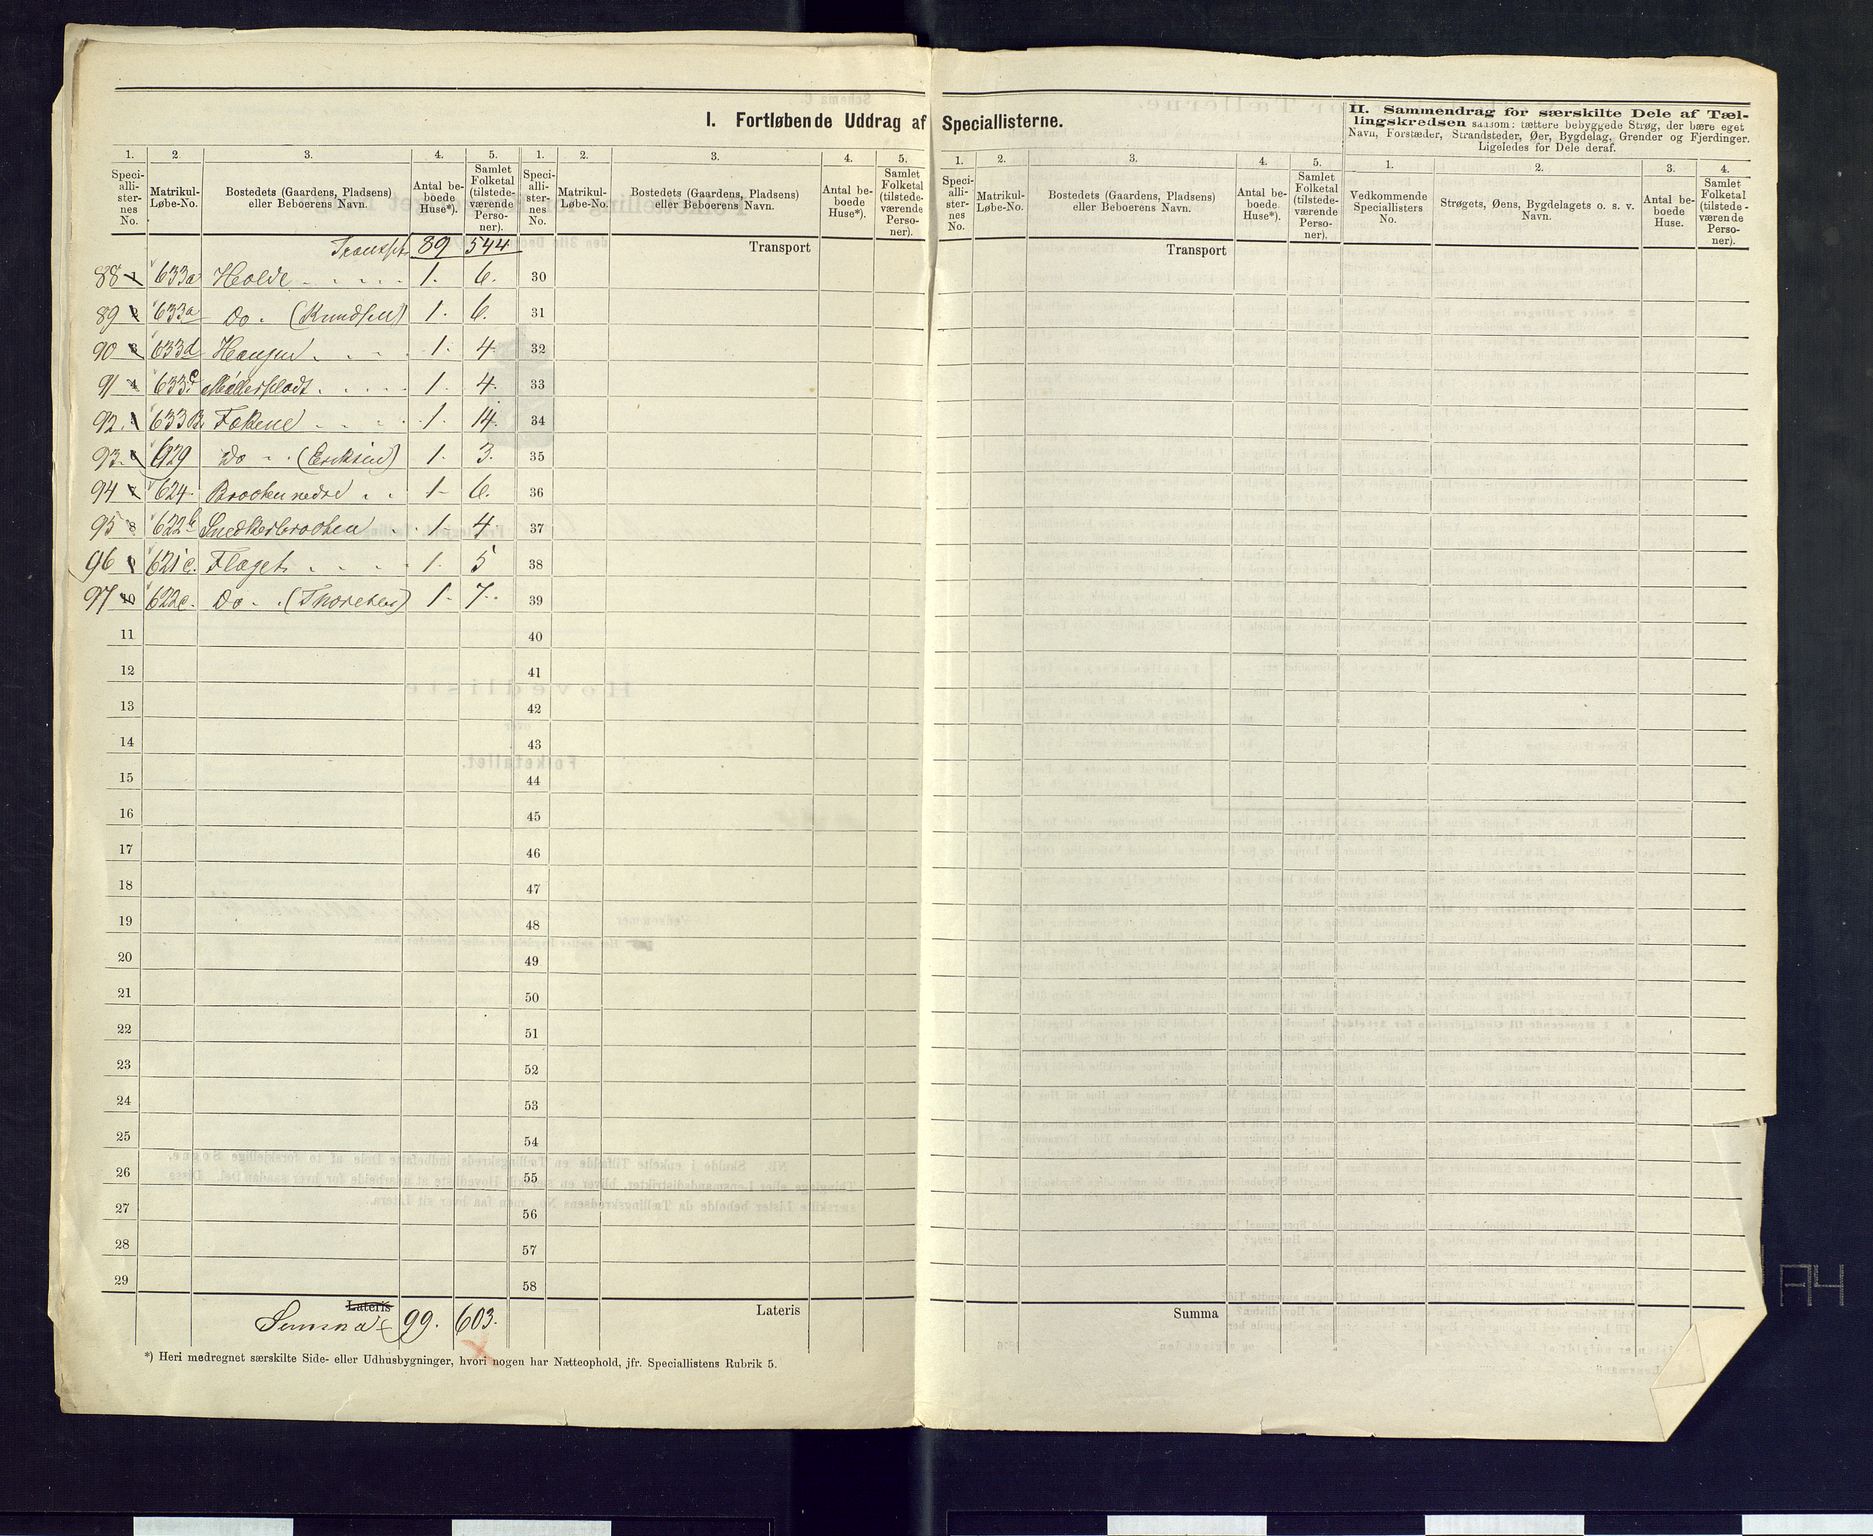 I. Fortløbende Uddrag af Speciallisterne.
II. Sammendrag for særskilte Dele af Tæl-
lingskredsen saasom: tættere bebyggede Strøg, der bære eget
Navn, Forstæder, Strandsteder, Øer, Bygdelag, Grender og Fjerdinger.
Ligeledes for Dele deraf.
1. 2. 3. 4. 5. 1. 2. 3. 4. 5. 1. 2. 3. 4. 5. 1. 2. 3. 4.
Speci-alli-ster-nes No. Matrikul-Løbe-No. Bostedets (Gaardens, Pladsens) eller Beboerens Navn. Antal be-boede Huse*). Samlet Folketal (tilstede-værende Perso-ner).
Speci-alli-ster-nes No. Matrikul-Løbe-No. Bostedets (Gaardens, Pladsens) eller Beboerens Navn. Antal be-boede Huse*). Samlet Folketal (tilstede-værende Perso-ner).
Speci-alli-ster-nes No. Matrikul-Løbe-No. Bostedets (Gaardens, Pladsens) eller Beboerens Navn. Antal be-boede Huse*). Samlet Folketal (tilstede-værende Perso-ner).
Vedkommende Speciallisters No. Strøgets, Øens, Bygdelagets o. s. v. Navn. Antal be-boede Huse. Samlet Folketal (tilstede-værende Perso-ner).
Transpt 89 544 Transport Transport
88 1 633a Holde 1. 6. 30
89 2 633a Do. (Knudsen) 1. 6. 31
90 3 633d Haugen 1. 4. 32
91 4 633c Møllerplads 1. 4. 33
92. 633B. Fokene 1. 14. 34
93. 629 Do (Eriksen) 1. 3. 35
94 624. Braaten nedre 1 6. 36
95 8 622b Snedkerbraaten 1 4. 37
96 621c. Flaget 1. 5 38
97 10 622c. Do. (Thoresen) 1. 7. 39
11 40
12 41
13 42
14 43
15 44
16 45
17 46
18 47
19 48
20 49
21 50
22 51
23 52
24 53
25 54
26 55
27 56
28 57
29 58
Lateris Summa 99. 603. Lateris Summa
*) Heri medregnet særskilte Side- eller Udhusbygninger, hvori nogen har Natteophold, jfr. Speciallistens Rubrik 5.